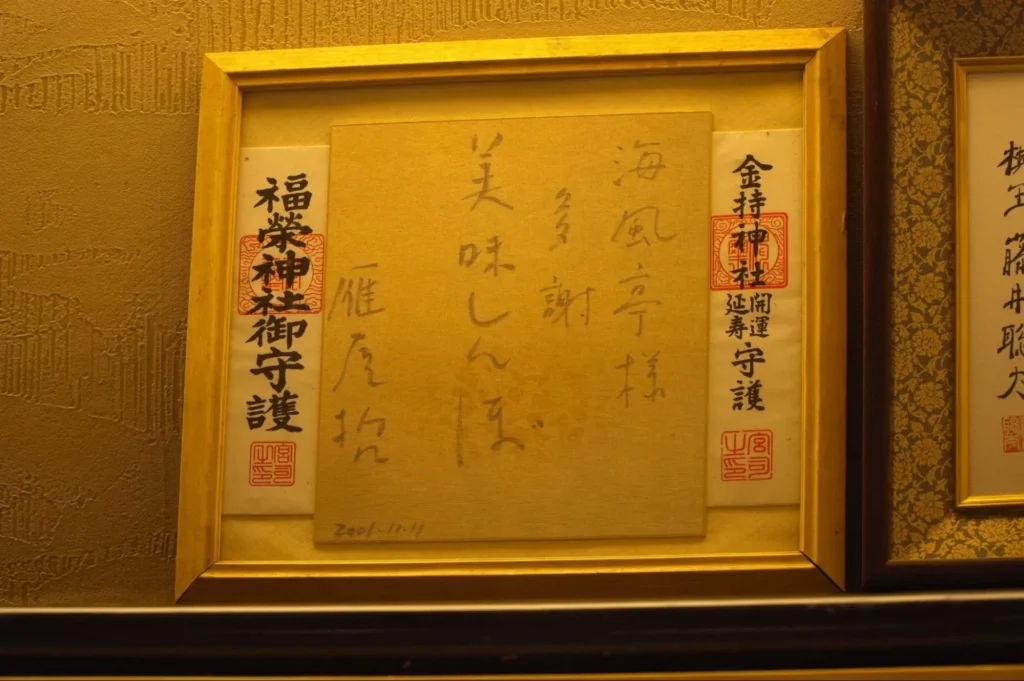 棋王 藤井聡太
金持神社
開運
延寿
守護
宮司
之印
海風亭様
多謝
美味しんぼ
雁屋哲
2001.11.11
福榮神社御守護
宮司
之印